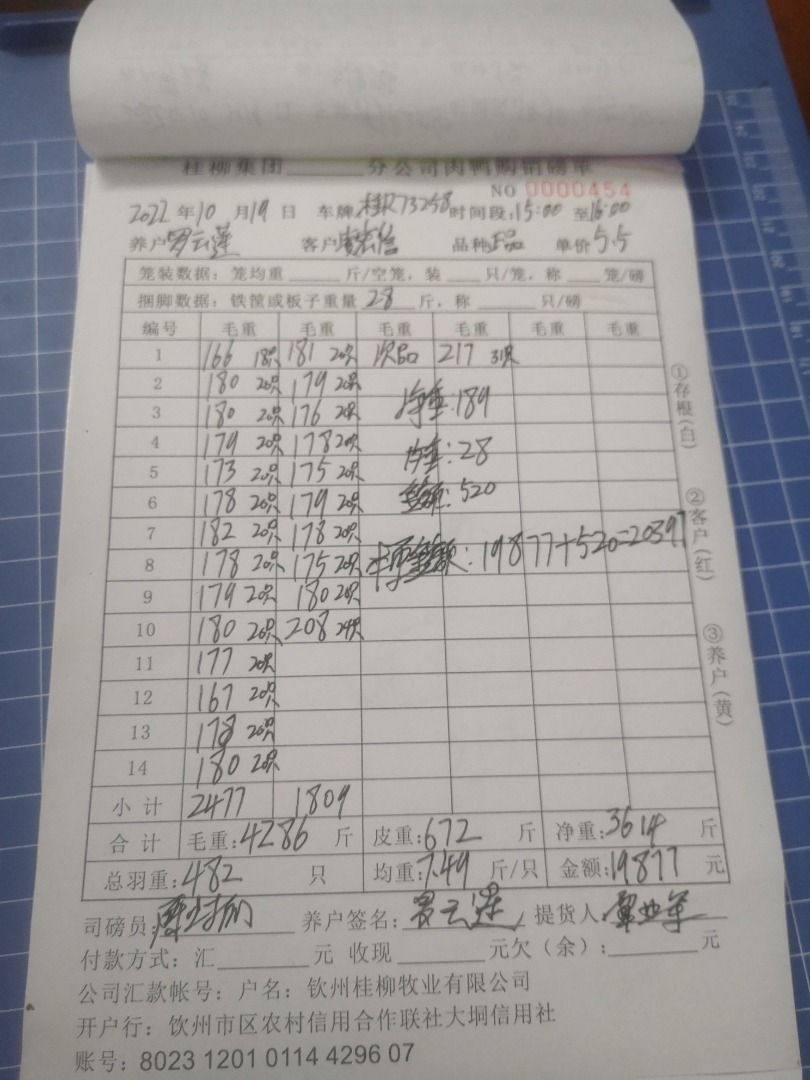 桂柳集团______分公司肉鸭购销磅单
NO 0000454
2022 年 10 月 19 日 车牌 桂R73258 时间段:15:00 至16:00
养户 罗云莲 客户 品种 正品 单价 5.5
笼装数据:笼均重______斤/空笼,装____只/笼,称____笼/磅
捆脚数据:铁筐或板子重量 28 斤,称______只/磅
编号 毛重 毛重 毛重 毛重 毛重 毛重
1 166 18只 181 20只 次品 217 31只
2 180 20只 179 20只
3 180 20只 176 20只 净重:189
4 179 20只 178 20只
5 173 20只 175 20只 皮重:28
6 178 20只 179 20只 金额:520
7 182 20只 178 20只
8 178 20只 175 20只 总金额:19877+520=20397
9 179 20只 180 20只
10 180 20只 208 24只
11 177 20只
12 167 20只
13 178 20只
14 180 20只
小计 2477 1809
合计 毛重:4286 斤 皮重:672 斤 净重:3614 斤
总羽重:482 只 均重:7.49 斤/只 金额:19877 元
司磅员: 养户签名:罗云莲 提货人:
付款方式:汇______元 收现______元欠(余):______元
公司汇款帐号:户名:钦州桂柳牧业有限公司
开户行:钦州市区农村信用合作联社大垌信用社
账号:8023 1201 0114 4296 07
①存根(白)
②客户(红)
③养户(黄)